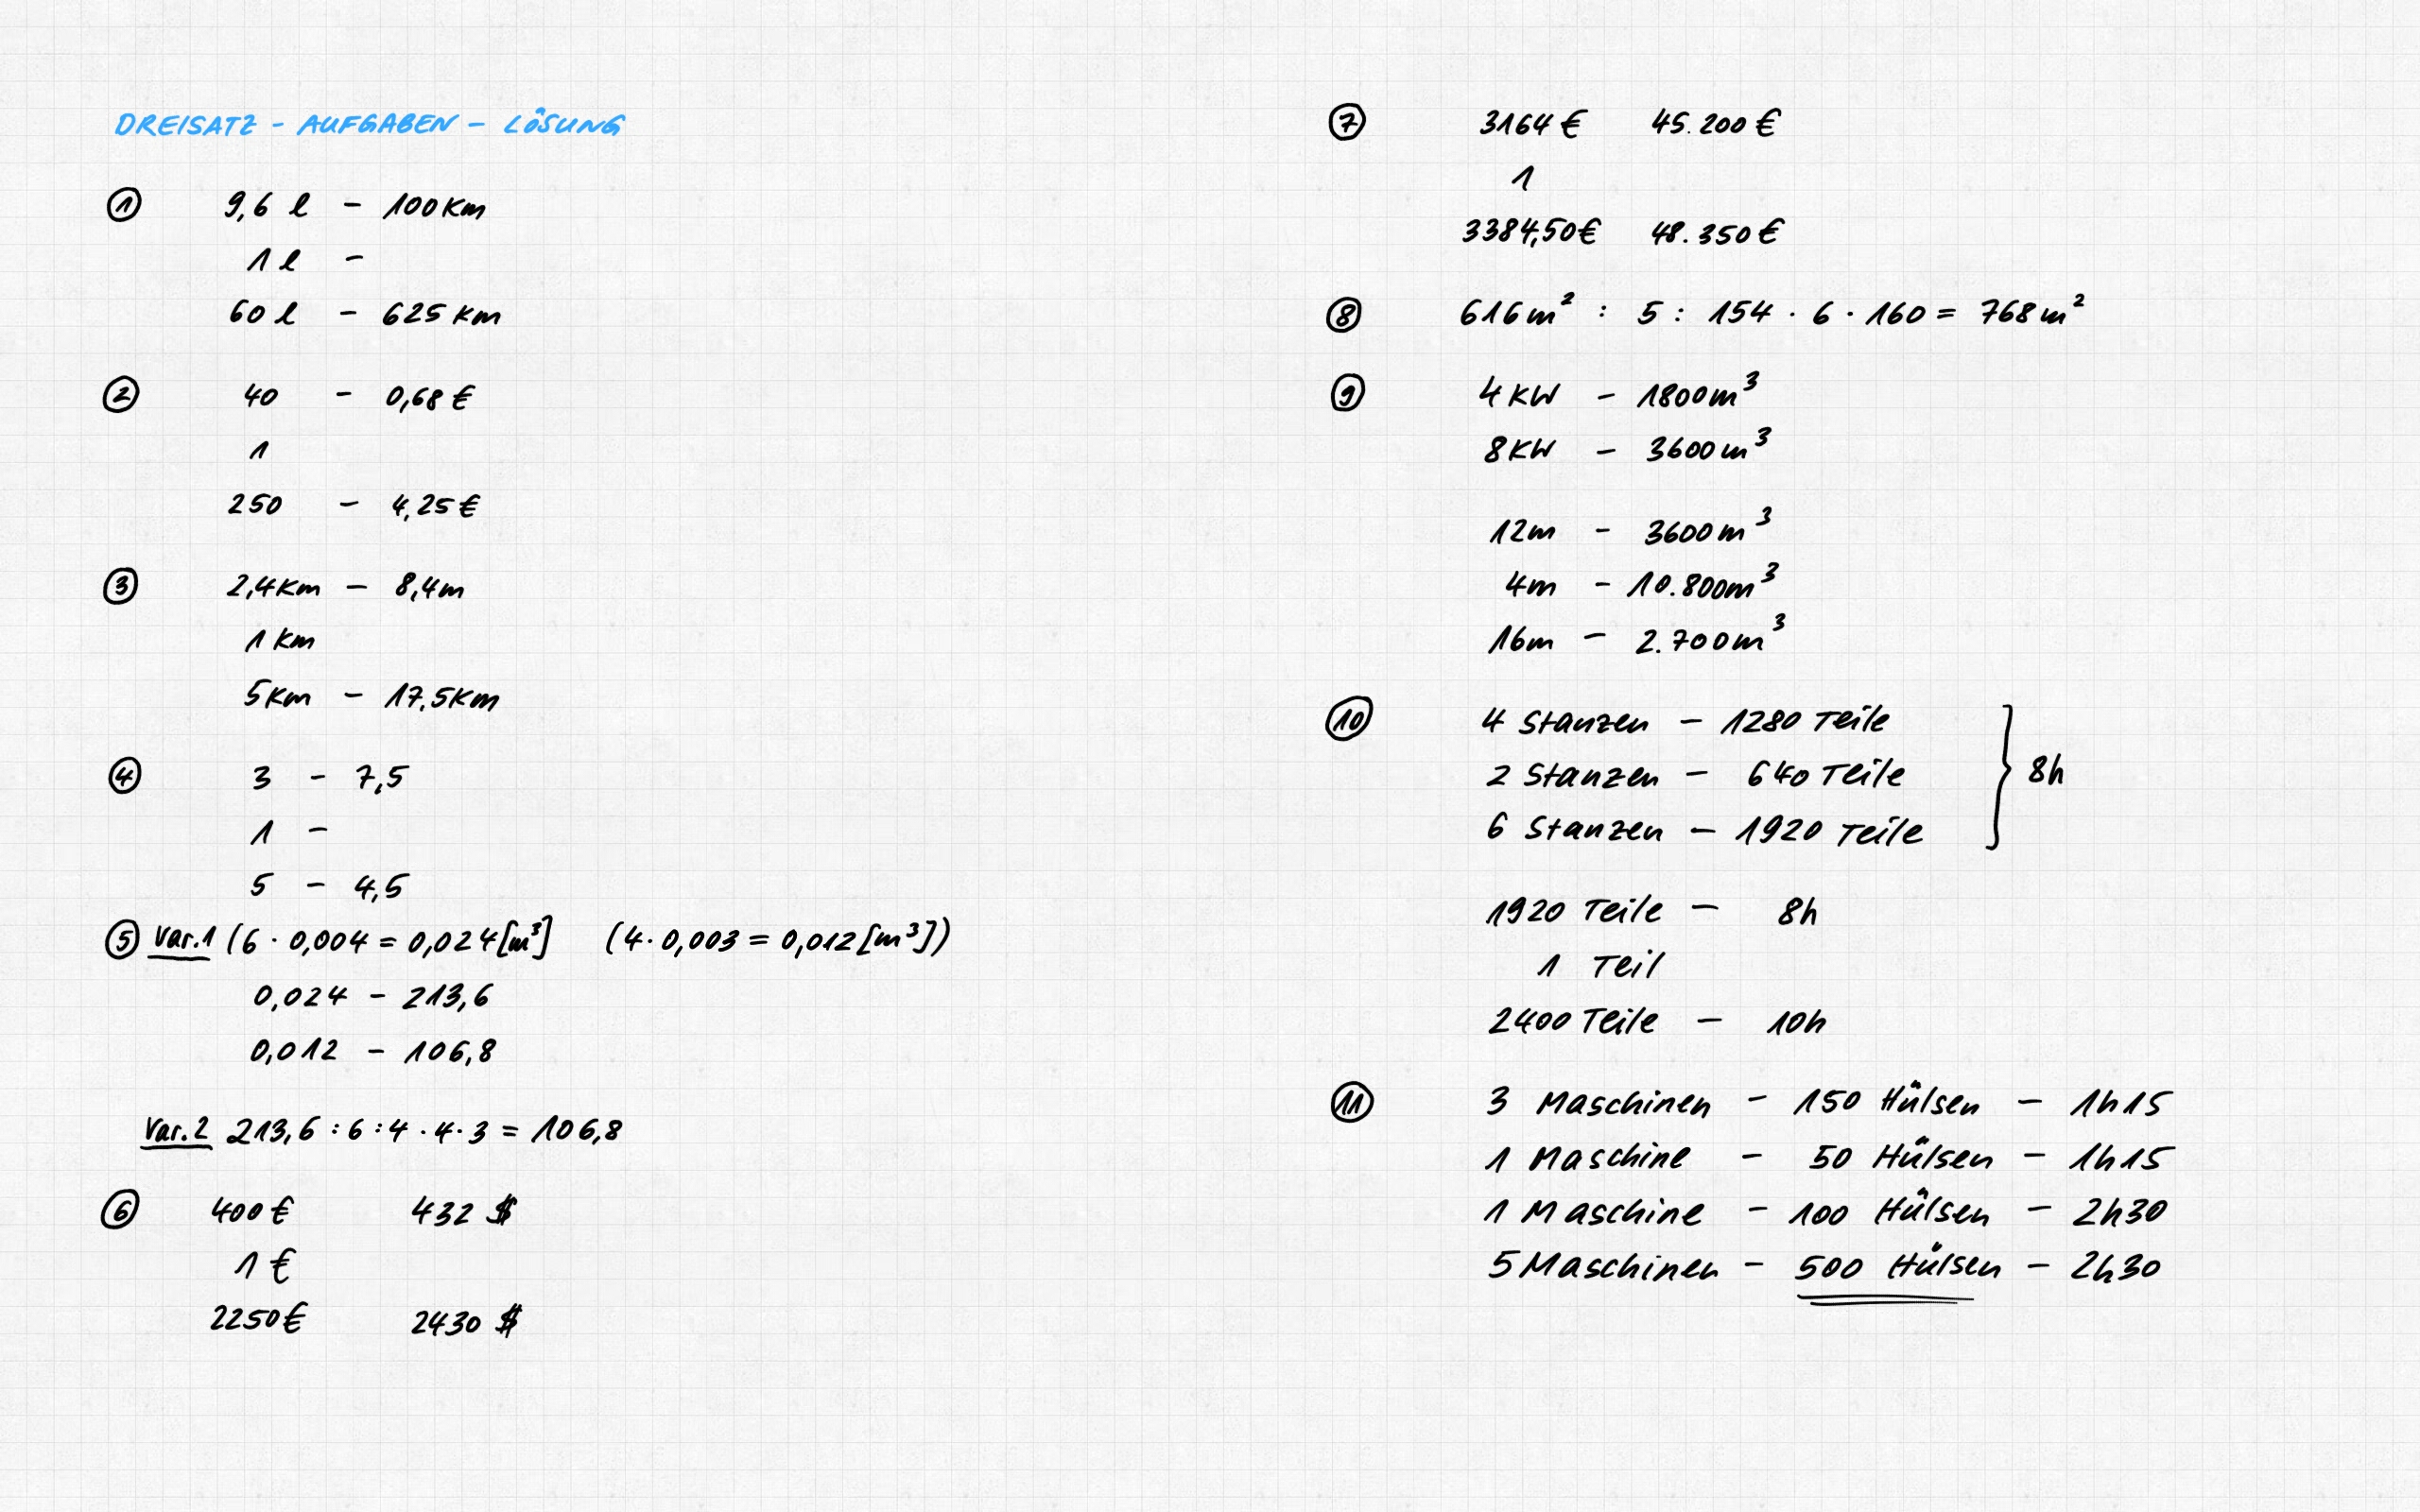 DREISATZ - AUFGABEN - LÖSUNG
① 9,6 l - 100 Km
1 l -
60 l - 625 Km
② 40 - 0,68 €
1
250 - 4,25 €
③ 2,4 Km - 8,4 m
1 Km
5 Km - 17,5 Km
④ 3 - 7,5
1 -
5 - 4,5
⑤ Var.1 (6 · 0,004 = 0,024 [m³] (4 · 0,003 = 0,012 [m³])
0,024 - 213,6
0,012 - 106,8
Var.2 213,6 : 6 : 4 · 4 · 3 = 106,8
⑥ 400 € 432 $
1 €
2250 € 2430 $
⑦ 3164 € 45.200 €
1
3384,50 € 48.350 €
⑧ 616 m² : 5 : 154 · 6 · 160 = 768 m²
⑨ 4 KW - 1800 m³
8 KW - 3600 m³
12 m - 3600 m³
4 m - 10.800 m³
16 m - 2.700 m³
⑩ 4 Stanzen - 1280 Teile
2 Stanzen - 640 Teile } 8h
6 Stanzen - 1920 Teile
1920 Teile - 8h
1 Teil
2400 Teile - 10h
⑪ 3 Maschinen - 150 Hülsen - 1h15
1 Maschine - 50 Hülsen - 1h15
1 Maschine - 100 Hülsen - 2h30
5 Maschinen - 500 Hülsen - 2h30